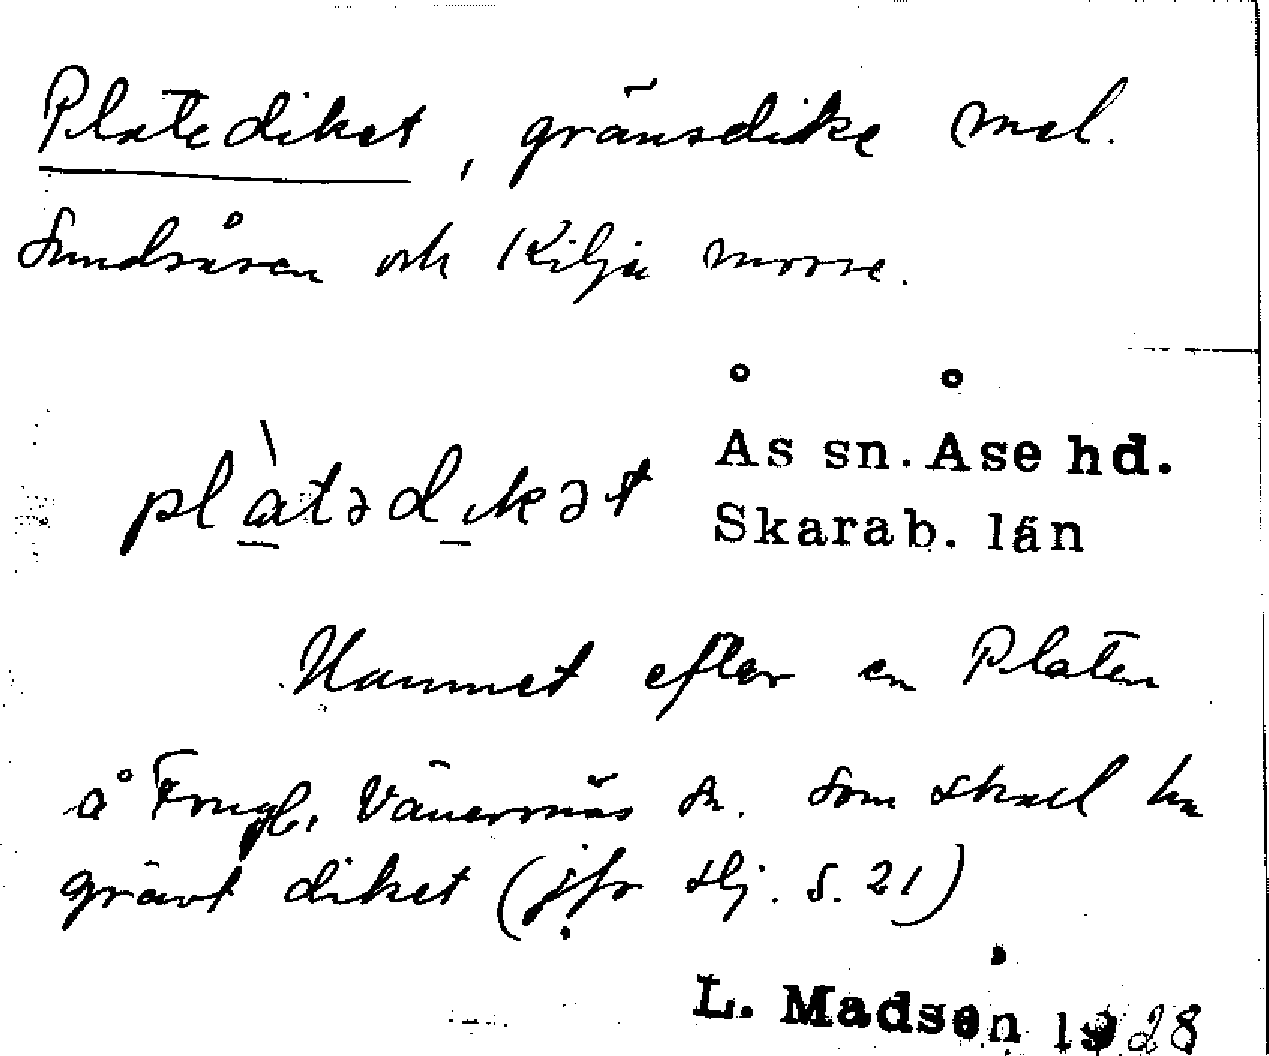 Platediket, gränsdike mel.
Sundsåsen och Kilja mosse.
plàtədikət
Ås sn. Åse hd.
Skarab. län
Namnet efter en Platen
å Frugl, Vänersnäs sn. som skall ha
grävt diket (jfr slj. s. 21)
L. Madsén 1928